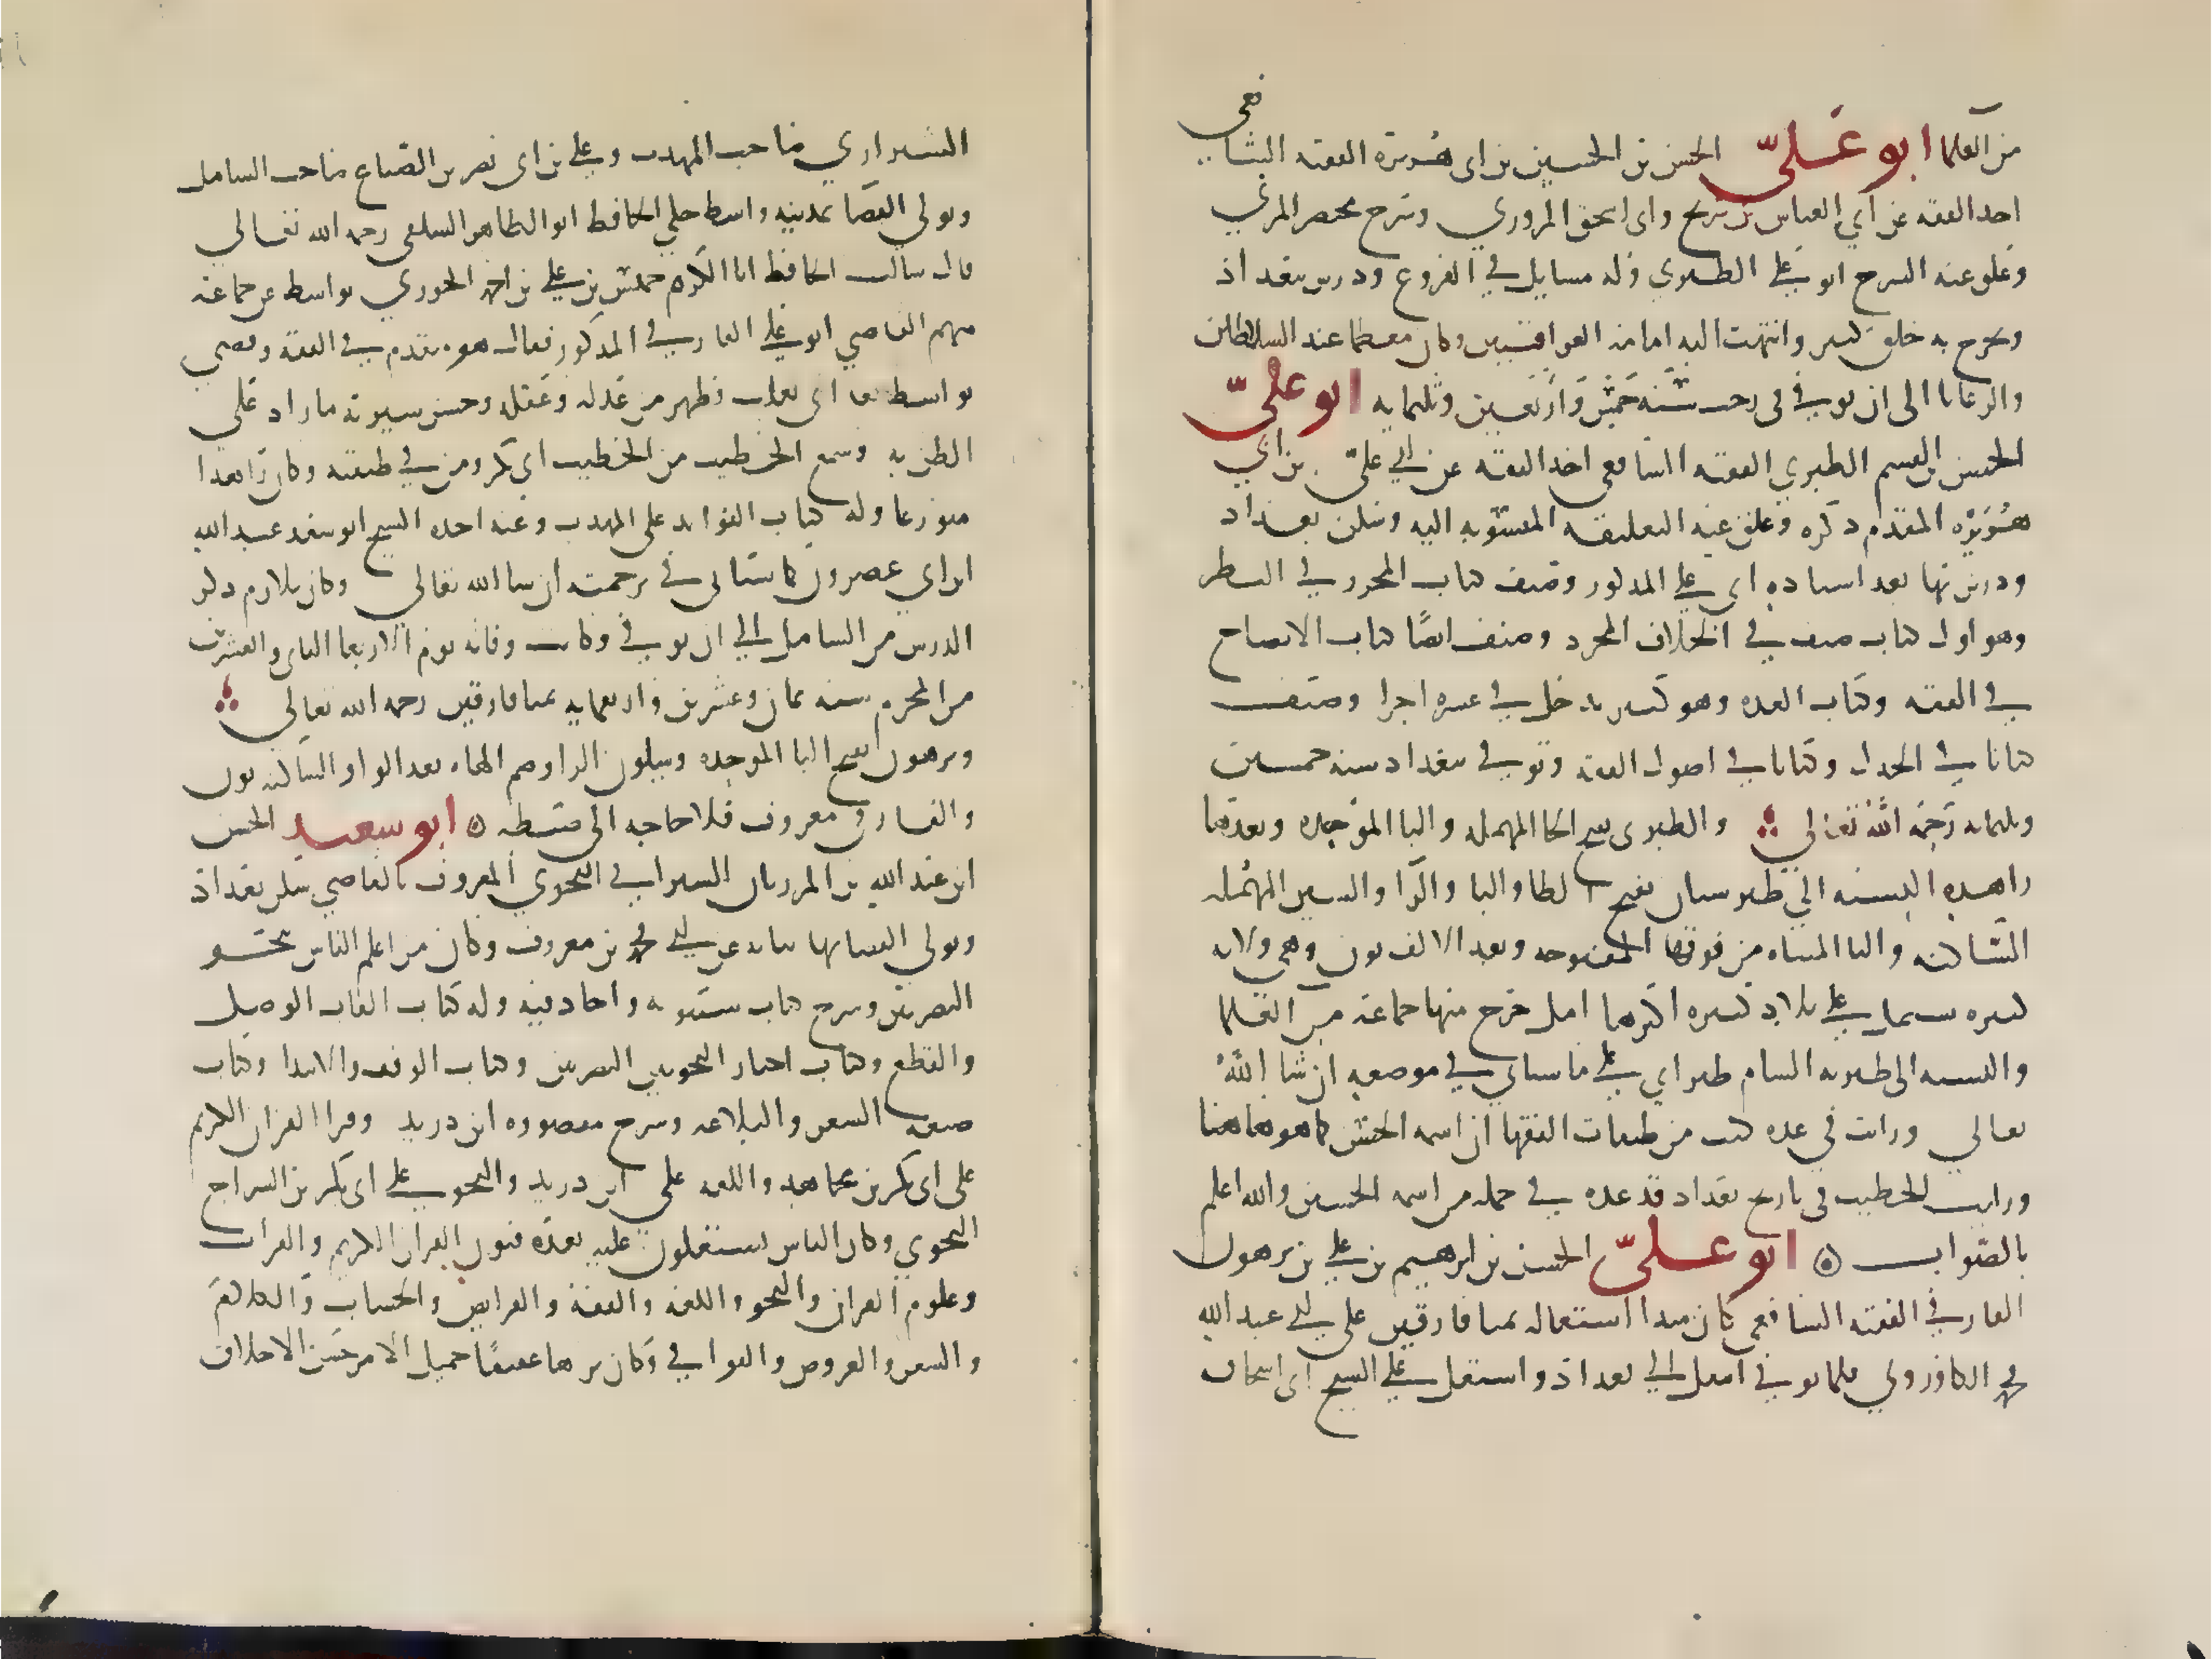 من العلما ابو عليّ الحسن بن الحسين بن ابى هريرة الفقيه الشافعى
اخذ الفقه عن أبي العباس بن سريج وابى اسحق المروزي وشرح مختصر المزني
وعلق عنه الشرح ابو علي الطبري وله مسايل في الفروع ودرس ببغداد
وتخرج به خلق كثير وانتهت اليه امامة العراقيين وكان معظما عند السلاطين
والرعايا الى ان توفي فى رجب سنة خمس واربعين وثلثمايه ابو عليّ
الحسن بن القسم الطبري الفقيه الشافعى اخذ الفقه عن ابي عليّ بن أبي
هريره المقدم ذكره وعلق عنه التعليقه المنسوبه اليه وسكن بغداد
ودرس بها بعد استاذه ابى علي المذكور وصنف كتاب المحرر في النظر
وهو اول كتاب صنف في الخلاف المجرد وصنف ايضًا كتاب الافصاح
في الفقه وكتاب العده وهو كبير يدخل في عشره اجزا وصنف
كتابا في الجدل وكتابا في اصول الفقه وتوفي ببغداد سنة خمسين
وثلثمايه رحمه الله تعالى والطبرى بفتح الطا المهمله والبا الموحده وبعدها
راهذه النسبه الي طبرستان بفتح الطا والبا والرا والسين المهمله
الساكنه والتا المثناه من فوقها المفتوحه وبعد الالف نون وهي ولايه
كبيره تشتمل علي بلاد كثيره اكبرها امل خرج منها جماعة من العلما
والنسبه الى طبريه الشام طبراني علي ما سياتي في موضعه ان شا الله
تعالي ورايت في عده كتب من طبقات الفقها ان اسمه الحسن كما هو هاهنا
ورايت الخطيب فى تاريخ بغداد قد عده في جمله من اسمه الحسين والله اعلم
بالصواب ابو علىّ الحسن بن ابرهيم بن علي بن برهون
الفارقي الفقيه الشافعي كان مبدا اشتغاله بميافارقين على ابي عبد الله
محمد الكازروني فلما توفي انتقل الي بغداد واشتغل علي الشيخ ابى اسحاق
الشيرازي صاحب المهذب وعلي بن ابى نصر بن الصباغ صاحب الشامل
وتولي القضا بمدينه واسط حكي الحافظ ابو الطاهر السلفى رحمه الله تعالي
قال سالت الحافظ ابا الكرم خميس بن علي بن احمد الحوزي بواسط عن جماعة
منهم القاضي ابو علي الفارقي المذكور فقال هو متقدم في الفقه وقضى
بواسط بعد ابى تغلب فظهر من عدله وعقله وحسن سيرته ما زاد على
الظن به وسمع الخطيب من الخطيب ابى بكر ومن في طبقته وكان زاهدا
متورعا وله كتاب الفوايد على المهذب وعنه اخذ الشيخ ابو سعد عبد الله
ابن أبي عصرون كما ستاتى في ترجمته ان شا الله تعالي وكان يلازم ذكر
الدرس من الشامل الي ان توفي وكانت وفاته يوم الاربعا الثانى والعشرين
من المحرم سنه ثمان وعشرين واربعمايه بميافارقين رحمه الله تعالي
وبرهون بفتح البا الموحده وسكون الرا وضم الهاء بعد الواو الساكنه نون
والفارقي معروف فلا حاجه الى ضبطه ابو سعيد الحسن
ابن عبد الله بن المرزبان السيرافي النحوي المعروف بالقاضي سكن بغداد
وتولى القضا بها نيابه عن ابي محمد بن معروف وكان من اعلم الناس بنحو
البصريين وشرح كتاب سيبويه واجاد فيه وله كتاب الفات الوصل
والقطع وكتاب اخبار النحويين البصريين وكتاب الوقف والابتدا وكتاب
صنعة الشعر والبلاغه وشرح مقصوره ابن دريد وقرا القران الكريم
على ابى بكر بن مجاهد واللغه على ابن دريد والنحو علي ابى بكر بن السراج
النحوي وكان الناس يشتغلون عليه بعده فنون القران الكريم والقرات
وعلوم القران والنحو واللغه والفقه والفرايض والحساب والكلام
والشعر والعروض والقوافي وكان نزها عفيفًا جميل الامر حسن الاخلاق